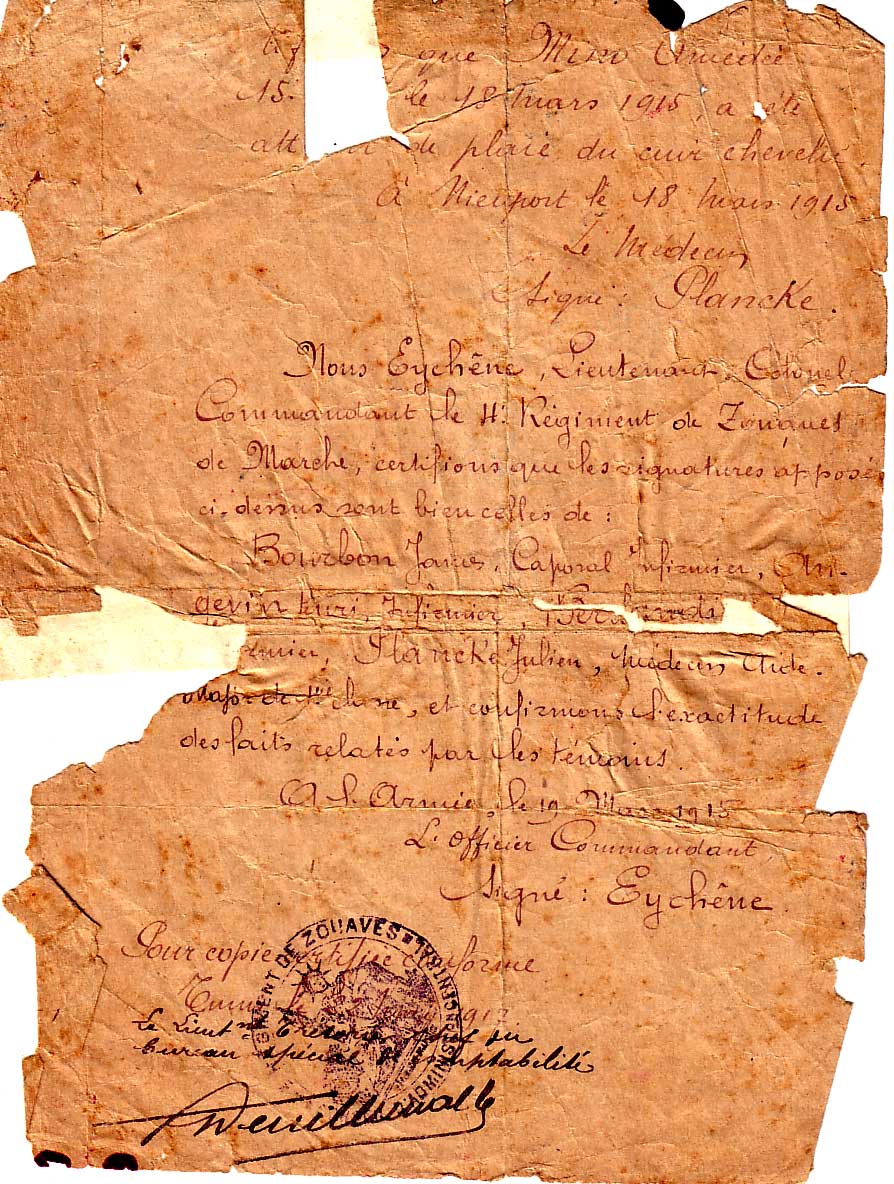 que Miro Amédée
15. le 18 mars 1915, a été
att de plaie du cuir chevelu.
à Nieuport le 18 Mars 1915
Le Médecin
Signé : Plancke.
Nous Eychêne, Lieutenant-Colonel
Commandant le 4e Régiment de Zouaves
de Marche, certifions que les signatures apposé
ci-dessus sont bien celles de :
Bourbon James, Caporal Infirmier, An-
gevin Henri, Infirmier,
rmier, Plancke Julien, Médecin Aide-
Major de 1ère classe, et confirmons l'exactitude
des faits relatés par les témoins.
A l'Armée, le 19 Mars 1915
L'Officier Commandant,
Signé : Eychêne
Pour copie certifiée conforme
le 191
Le Lieutnt Trésorier chef du
bureau spécial de comptabilité
MENT DE ZOUAVES